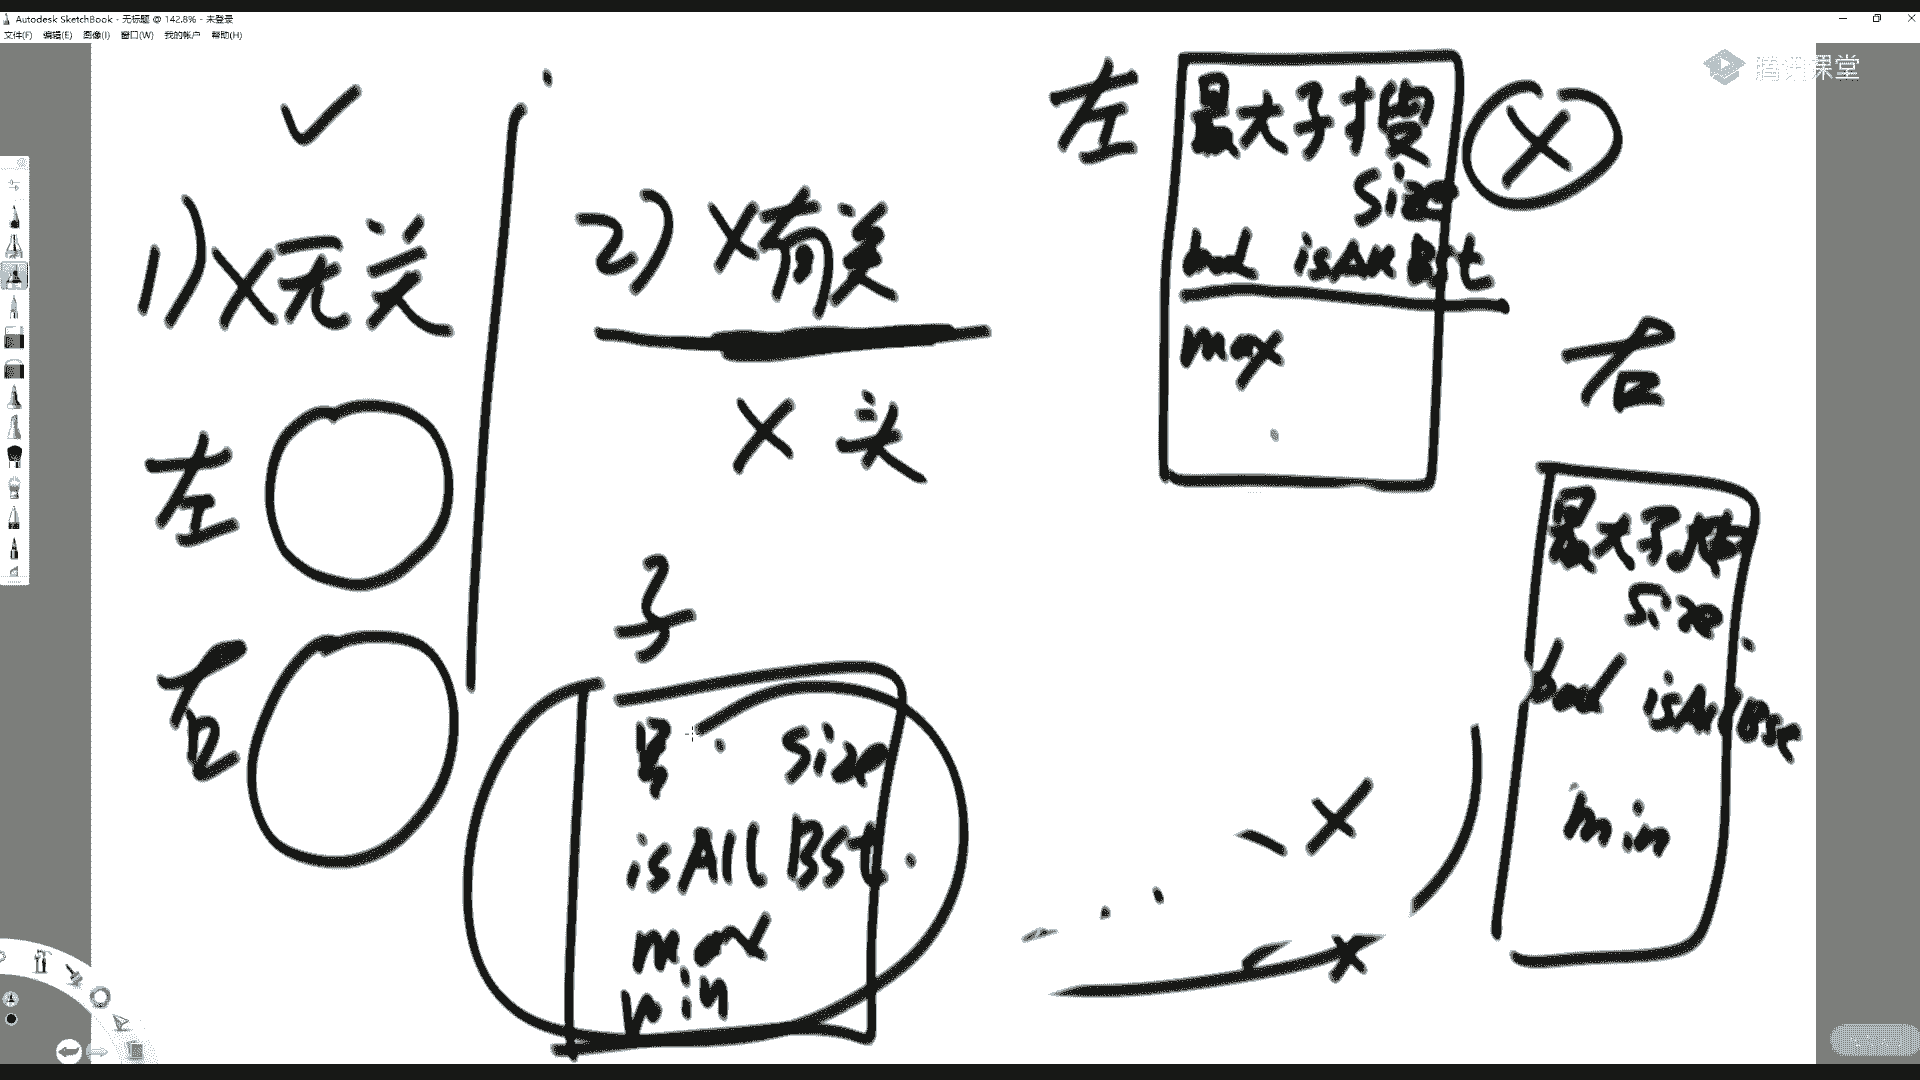 Autodesk SketchBook - 无标题 @ 142.8% - 未登录
文件(F) 编辑(E) 图像(I) 窗口(W) 我的帐户 帮助(H)
腾讯课堂
1) X无关
左
右
2) X有关
X 头
子
size
isAll Bst
max
min
左
最大子搜
size
bool isAll Bst
max
X
右
最大子搜
size
bool isAll Bst
min
X
X